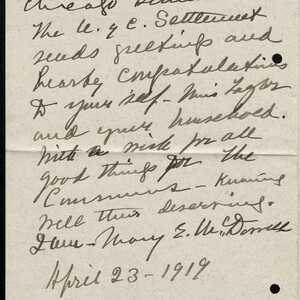 Chicago
The U. of C. Settlement
sends greetings and
hearty congratulations
to yourself - Miss Taylor
and your household.
With a wish for all
good things for the
Commons - knowing
well their deserving.
I am - Mary E. McDowell
April 23 - 1919